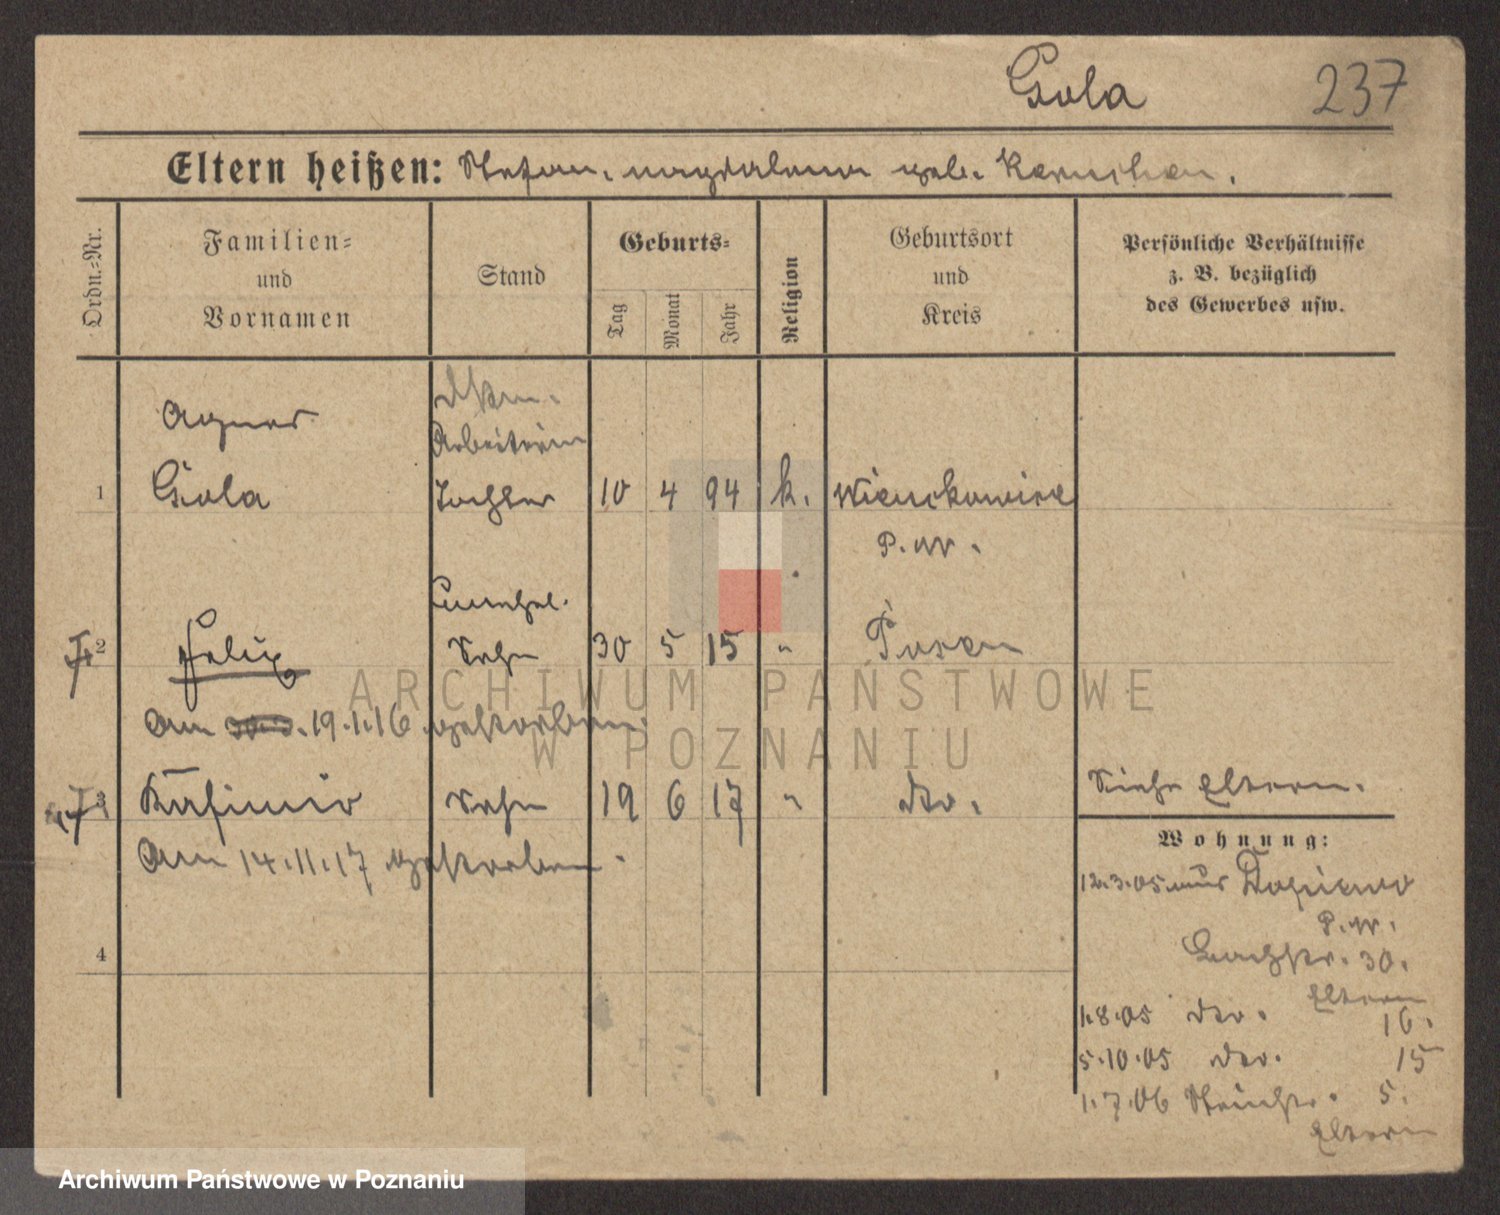 Gola 237
Eltern heißen: Stefan, Magdalena geb.
Ordn.-Nr.
Familien-
und
Vornamen
Stand
Geburts-
Tag
Monat
Jahr
Religion
Geburtsort
und
Kreis
Persönliche Verhältnisse
z. B. bezüglich
des Gewerbes usw.
Agnes
Arbeiterin
1 Gola Tochter 10 4 94 k.
P. W.
unehel.
2 Felix Sohn 30 5 15 " Posen
Am 19.1.16 gestorben.
3 Kasimir Sohn 19 6 17 " dto.
Siehe Eltern.
Wohnung:
Am 14.11.17 gestorben.
12.3.05 aus Dopiewo
P. W.
4
30.
Eltern
1.8.05 dto. 16.
5.10.05 dto. 15
1.7.06 5.
Eltern
ARCHIWUM PAŃSTWOWE
W POZNANIU
Archiwum Państwowe w Poznaniu